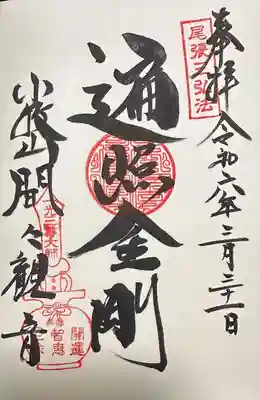 奉拝 令和六年三月三十一日
尾張三弘法
遍照金剛
小牧山 間々観音
大師
開運
智恵